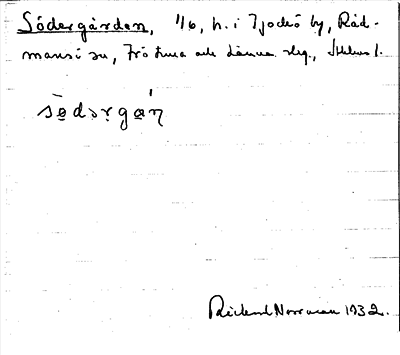 Södergården, 1/6, h. i Tjockö by, Råd-
mansö sn, Frötuna och Länna skg., Sthlms l.
södərgån
Rickard Norrman 1932.